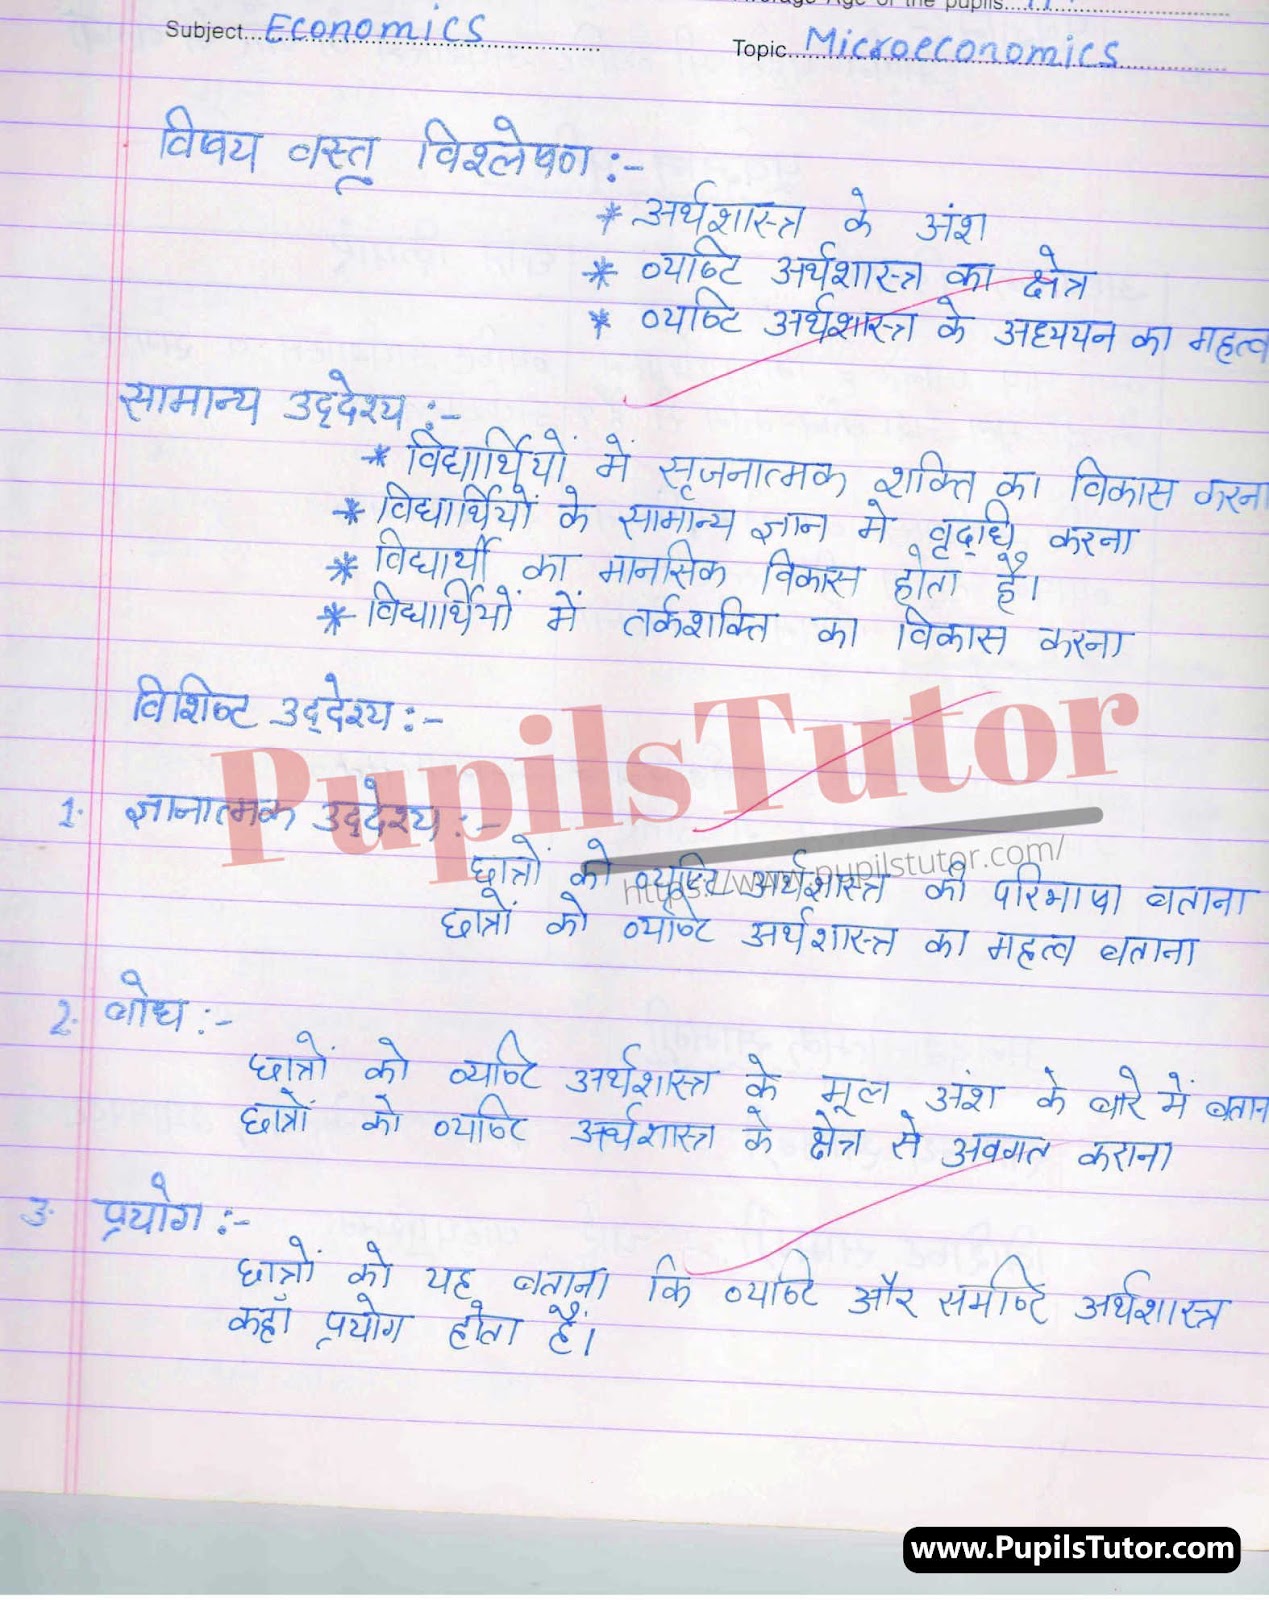 Average Age of the pupils...17
Subject...Economics
Topic...Microeconomics
विषय वस्तू विश्लेषण :-
* अर्थशास्त्र के अंश
* व्यष्टि अर्थशास्त्र का क्षेत्र
* व्यष्टि अर्थशास्त्र के अध्ययन का महत्व
सामान्य उद्देश्य :-
* विद्यार्थियों में सृजनात्मक शक्ति का विकास करना
* विद्यार्थियों के सामान्य ज्ञान मे वृद्धि करना
* विद्यार्थी का मानसिक विकास होता है।
* विद्यार्थियों में तर्कशक्ति का विकास करना
विशिष्ट उद्देश्य :-
PupilsTutor
1. ज्ञानात्मक उद्देश्य :-
https://www.pupilstutor.com/
छात्रों को व्यष्टि अर्थशास्त्र की परिभाषा बताना
छात्रों को व्यष्टि अर्थशास्त्र का महत्व बताना
2. बोध :-
छात्रों को व्यष्टि अर्थशास्त्र के मूल अंश के बारे में बतान
छात्रों को व्यष्टि अर्थशास्त्र के क्षेत्र से अवगत कराना
3. प्रयोग :-
छात्रों को यह बताना कि व्यष्टि और समष्टि अर्थशास्त्र
कहाँ प्रयोग होता हैं।
www.PupilsTutor.com